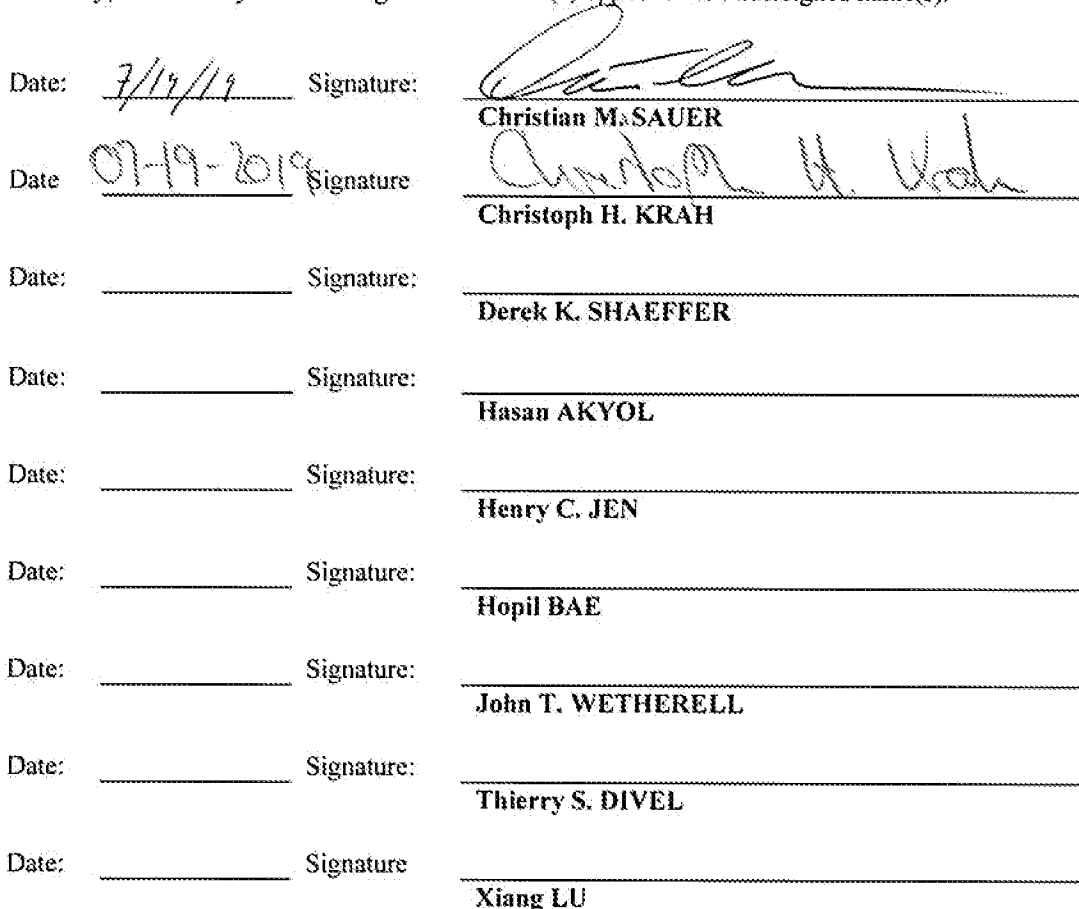 Date: 7/19/19 Signature:
Christian M. SAUER
Date 07-19-2019 Signature Christoph H. Krah
Christoph H. KRAH
Date: Signature:
Derek K. SHAEFFER
Date: Signature:
Hasan AKYOL
Date: Signature:
Henry C. JEN
Date: Signature:
Hopil BAE
Date: Signature:
John T. WETHERELL
Date: Signature:
Thierry S. DIVEL
Date: Signature
Xiang LU